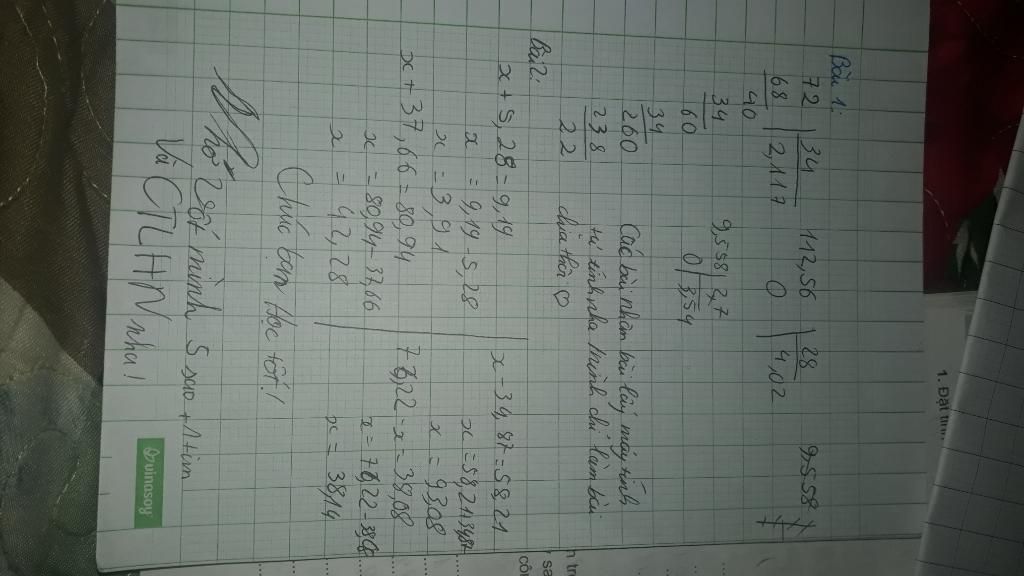 Bài 1:
72 34 112,56 28
68 2,117 0 4,02
40
34 9,558 2,7
60 0 3,54
34
260 Các bài nhân bạn lấy máy tính
238 tự tính nha mình chỉ làm bài
22 chia thôi
Bài 2:
x + 5,28 = 9,19 x - 34,87 = 58,21
x = 9,19 - 5,28 x = 58,21+34,87
x = 3,91 x = 93,08
x + 37,66 = 80,94 76,22 - x = 38,08
x = 80,94 - 37,66 x = 76,22 - 38,08
x = 42,28 x = 38,14
Chúc bạn học tốt!
Nhớ vote mình 5 sao + 1 tim
Và CTLHN nha!
vinasoy
1. Đặt tính